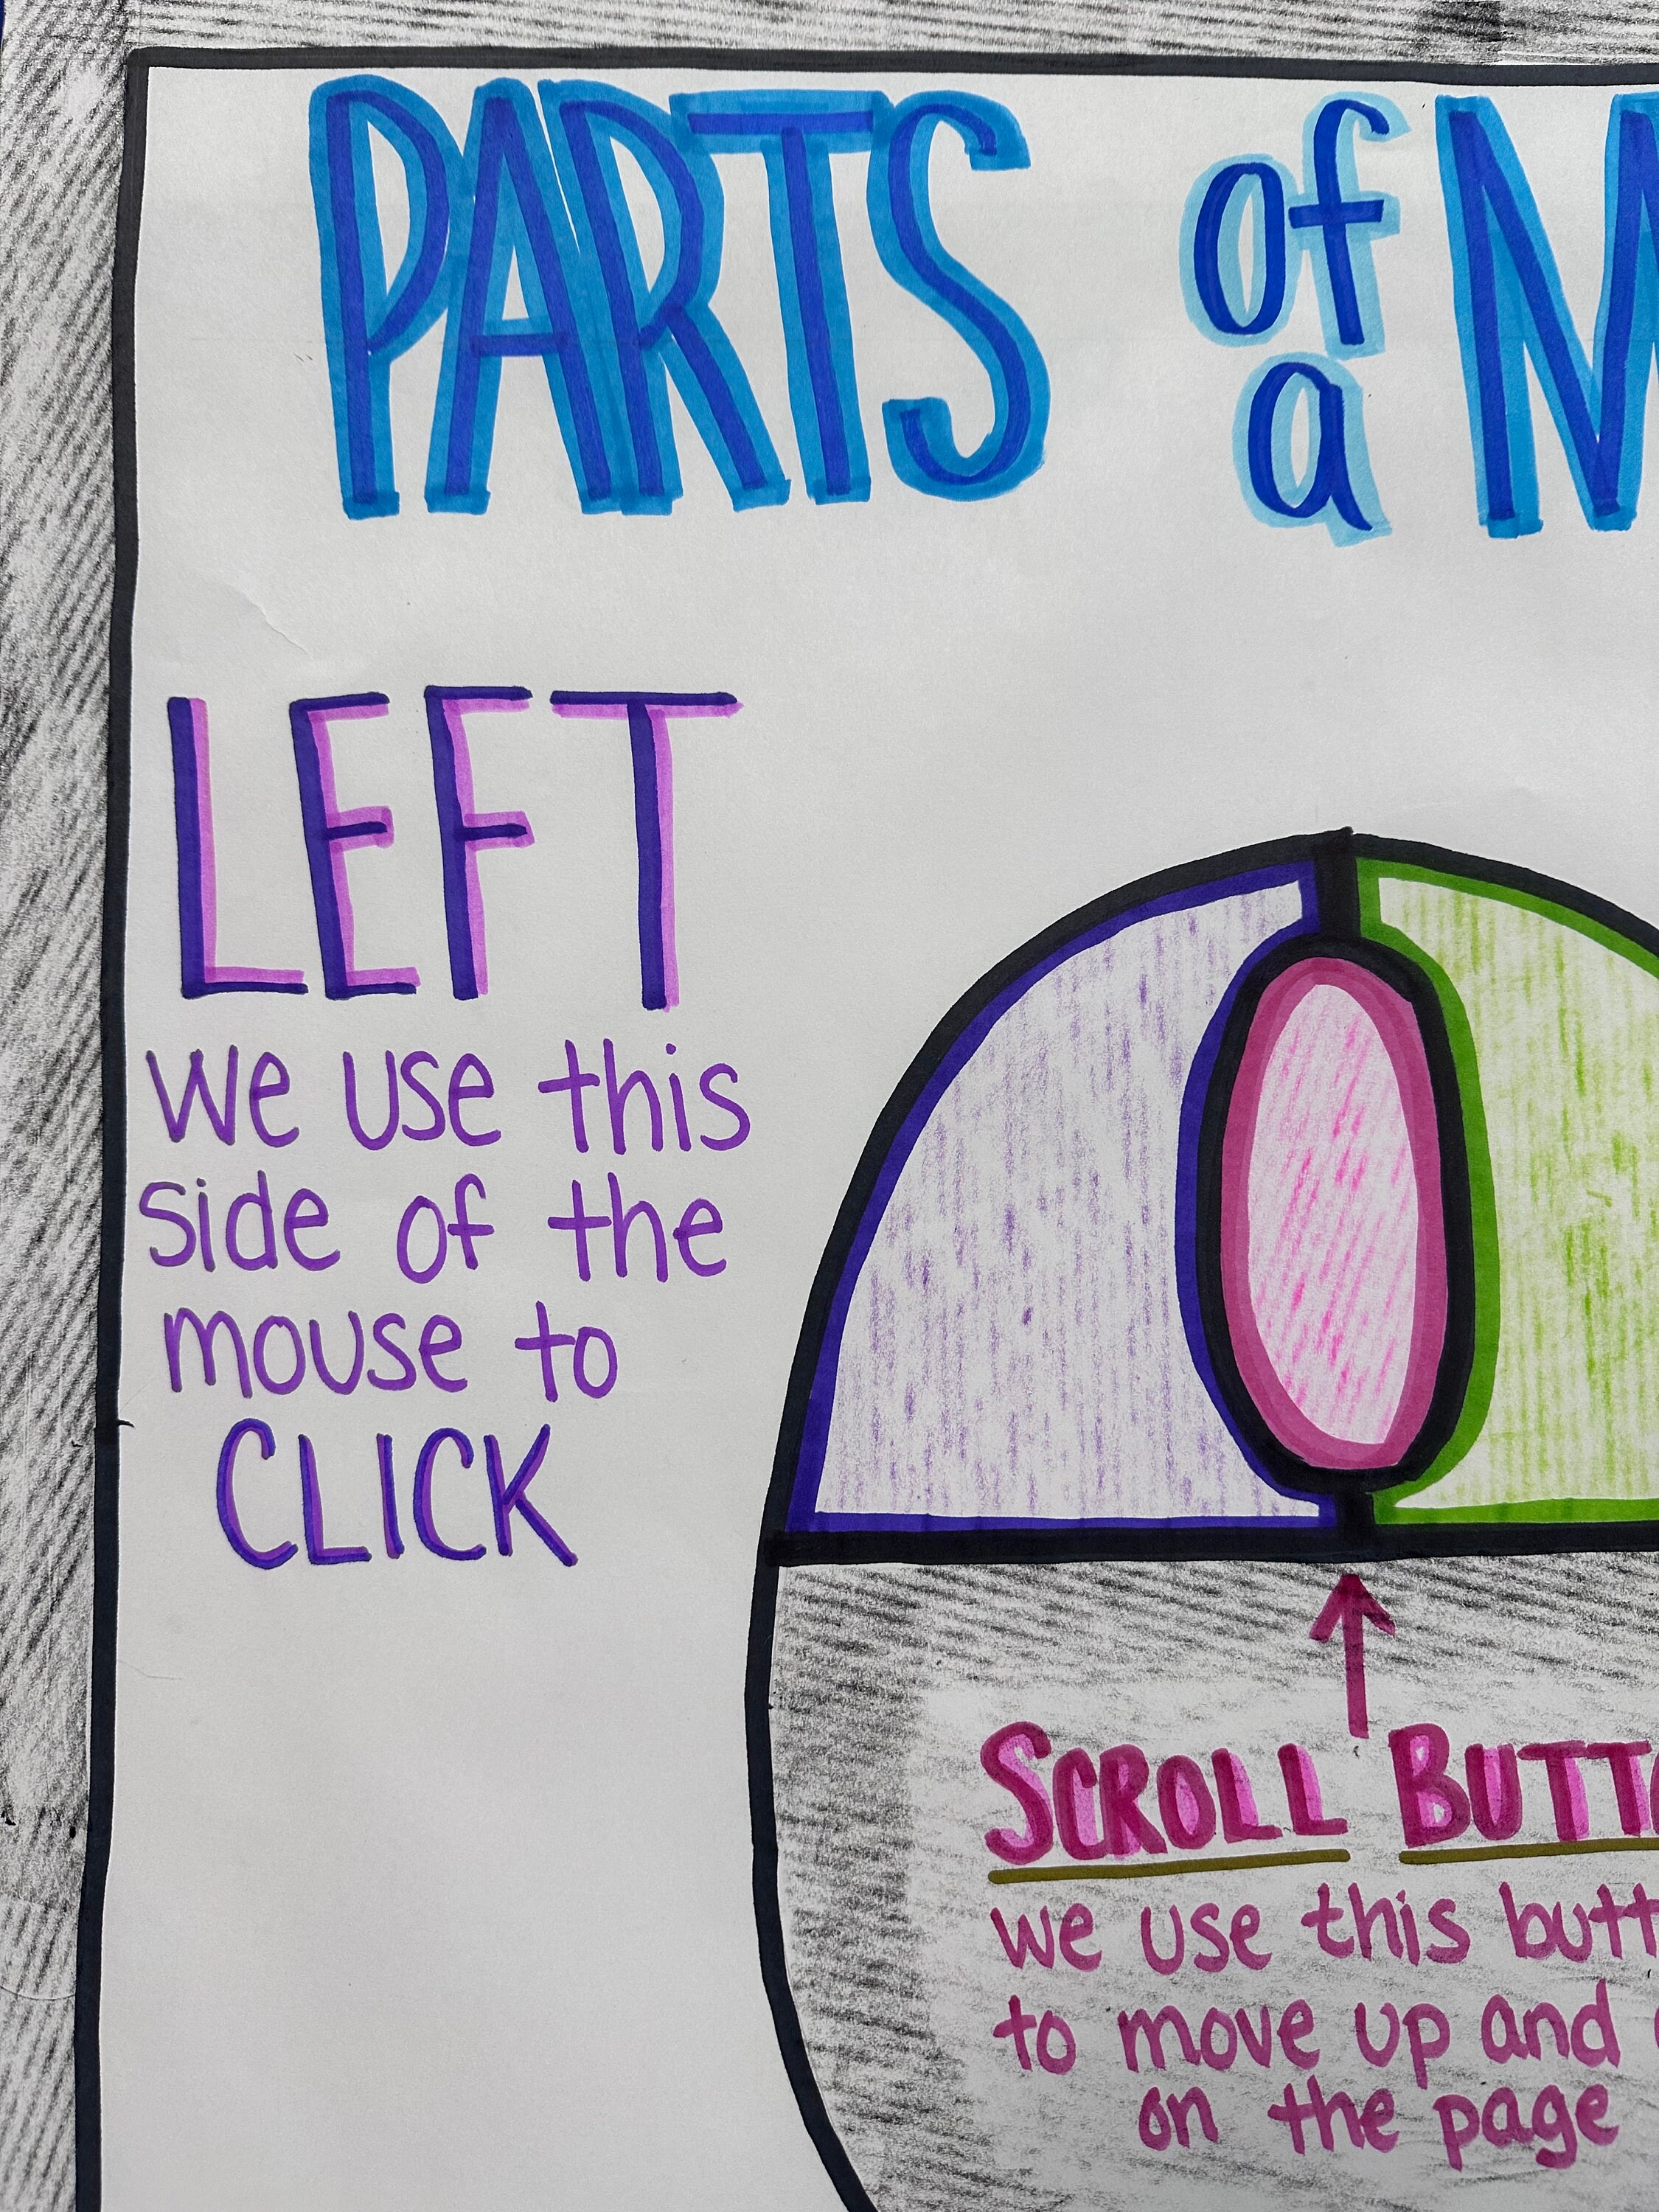 PARTS of
a
LEFT
we use this
side of the
mouse to
CLICK
SCROLL
we use this
to move up and
on the page